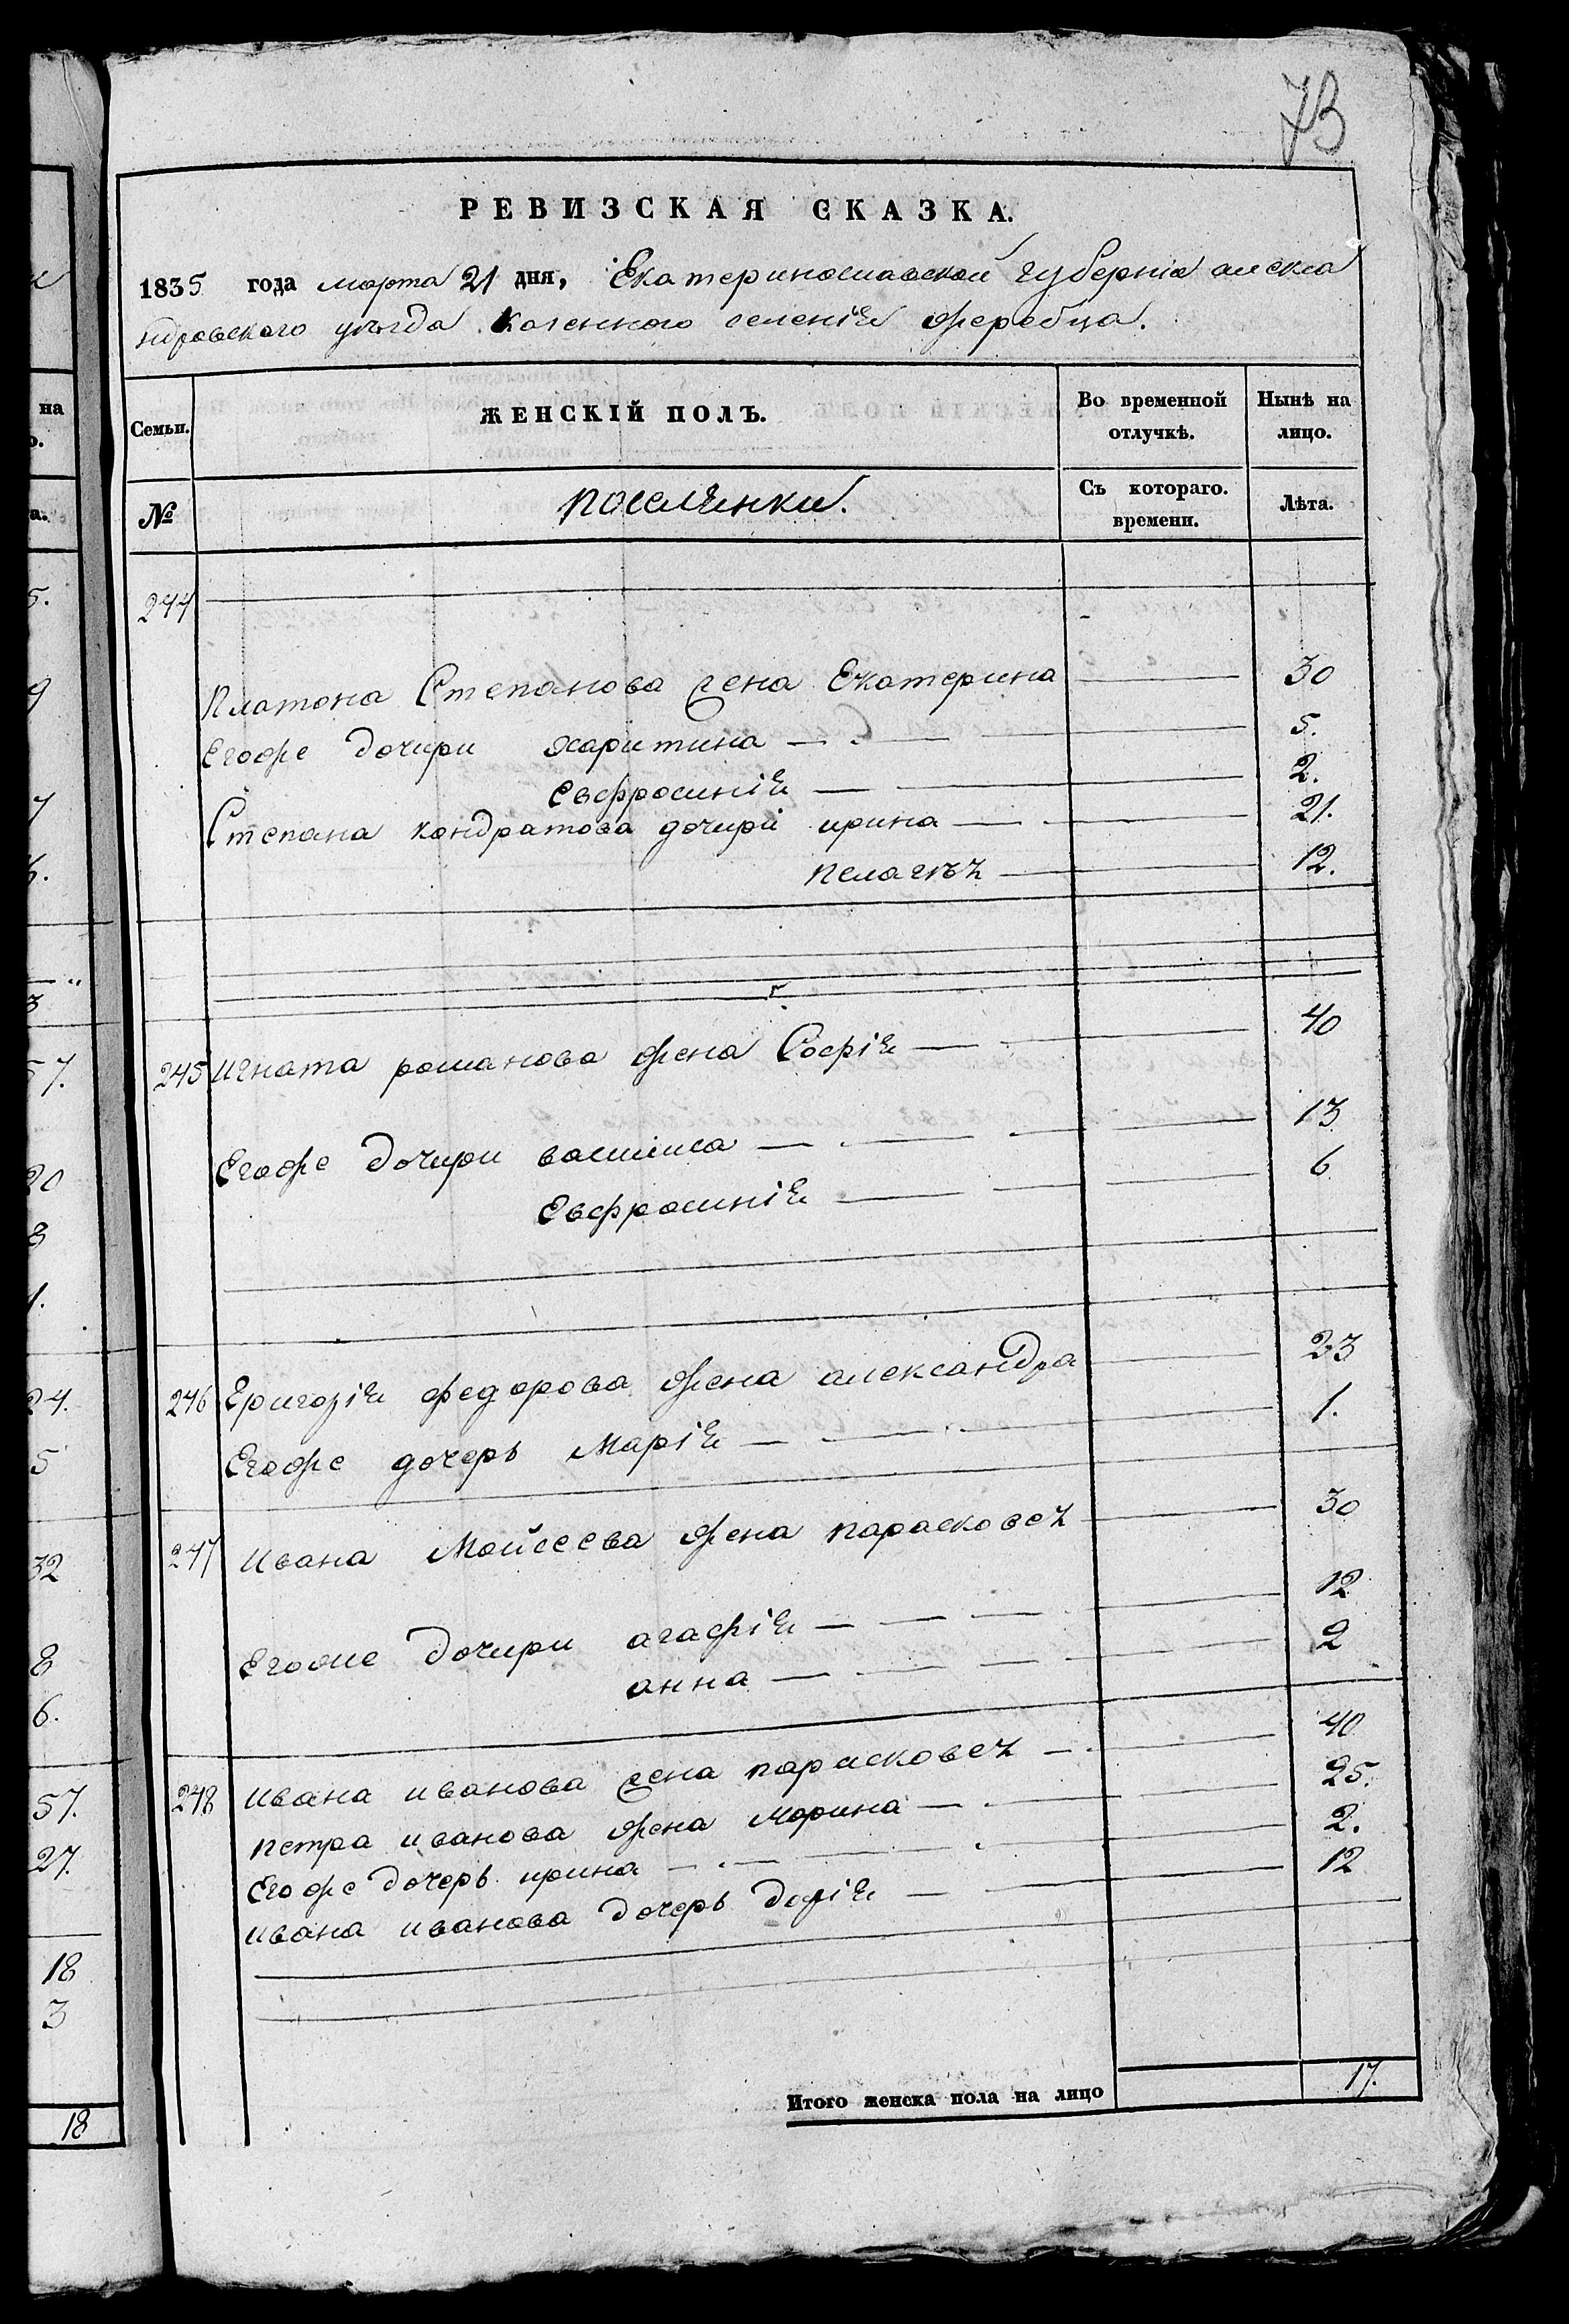 73
РЕВИЗСКАЯ СКАЗКА.
1835 года марта 21 дня, Екатеринославской губернiи алекса
ндровского уѣзда казенного селенiя жеребца.
Семьи.
ЖЕНСКIЙ ПОЛЪ.
Во временной отлучкѣ.
Нынѣ на лицо.
№
поселянки.
Съ котораго. времени.
Лѣта.
244
Платона Степанова жена Екатерина 30
Егоже дочири харитина 5.
Евфросинiя 2.
Степана кондратова дочири ирина 21.
пелагѣя 12.
245 игната романова жена Софiя 40
Егоже дочири василиса 13
Евфросинiя 6
246 Григорiя федорова жена александра 23
Егоже дочерь Марiя 1.
247 ивана Мойсеева жена парасковея 30
Егоже дочири агафiя 12
анна 2
248 ивана иванова жена парасковея 40
петра иванова жена Марина 25.
Егоже дочерь ирина 2.
ивана иванова дочерь 12
Итого женска пола на лицо 17.
на
5.
9
7
3
57.
20
8
1.
24.
5
32
8
6.
57.
27.
18
3
18